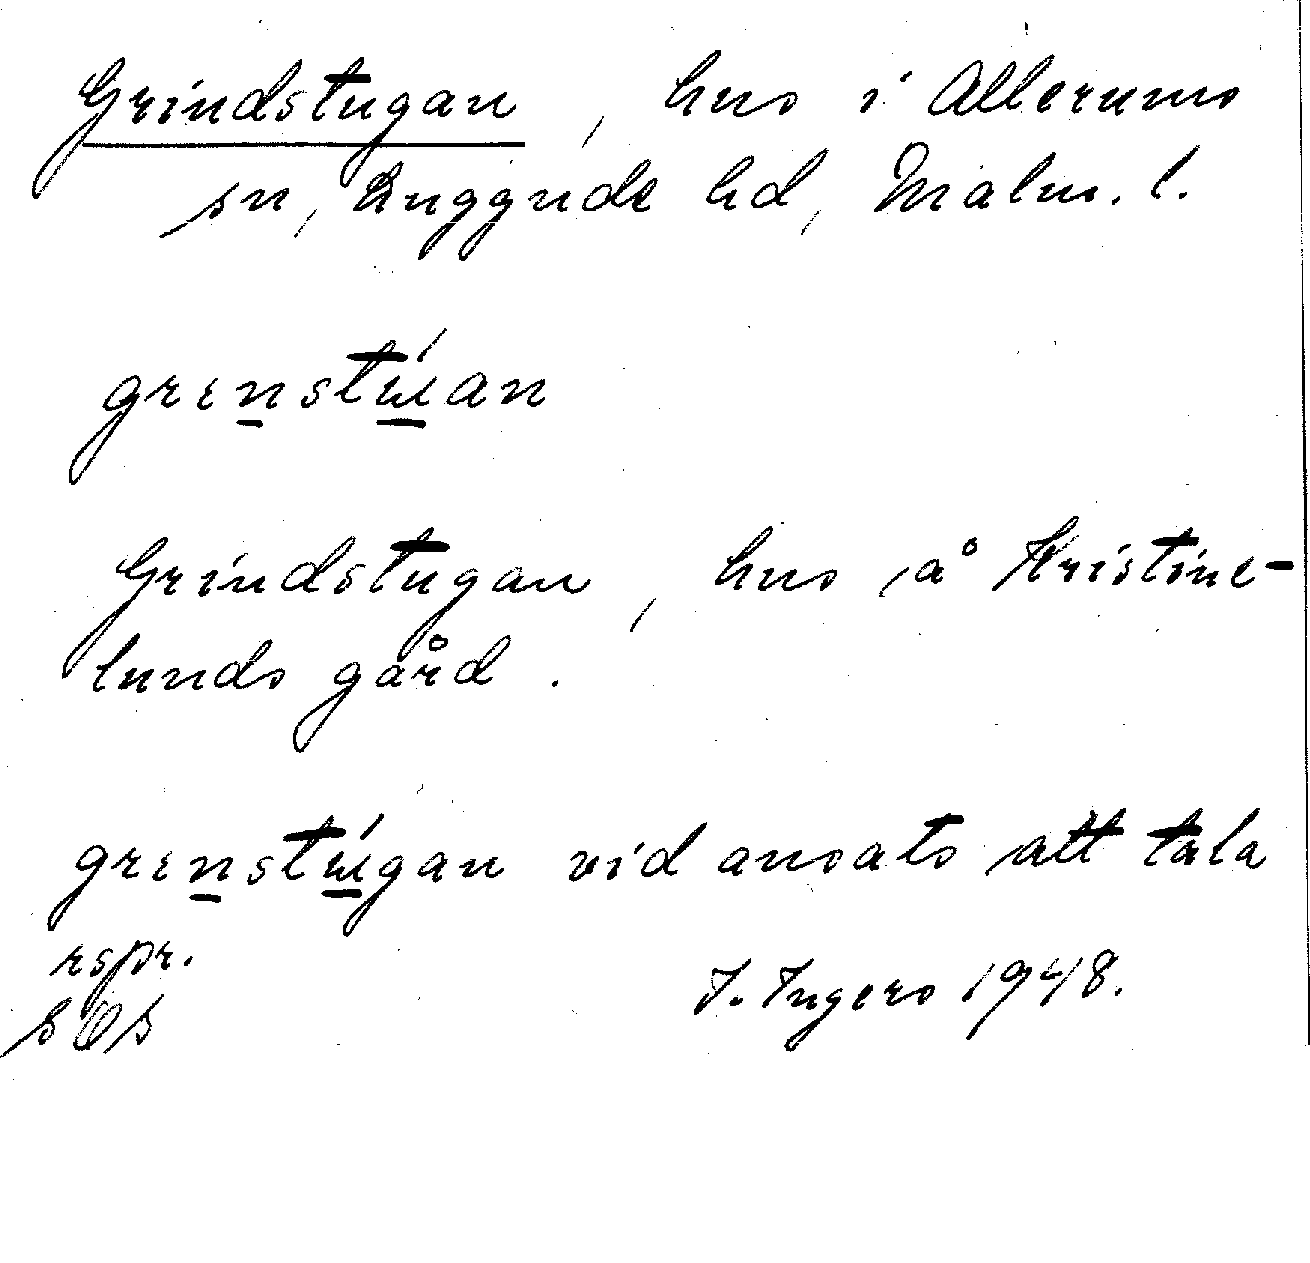 Grindstugan, hus i Allerums
sn, Luggude hd, Malm. l.
grɛn̲stɯ̲́an
Grindstugan, hus på Kristine-
lunds gård.
grɛn̲stɯ̲́gan vid ansats att tala
rspr.
SOS I. Ingers 1948.